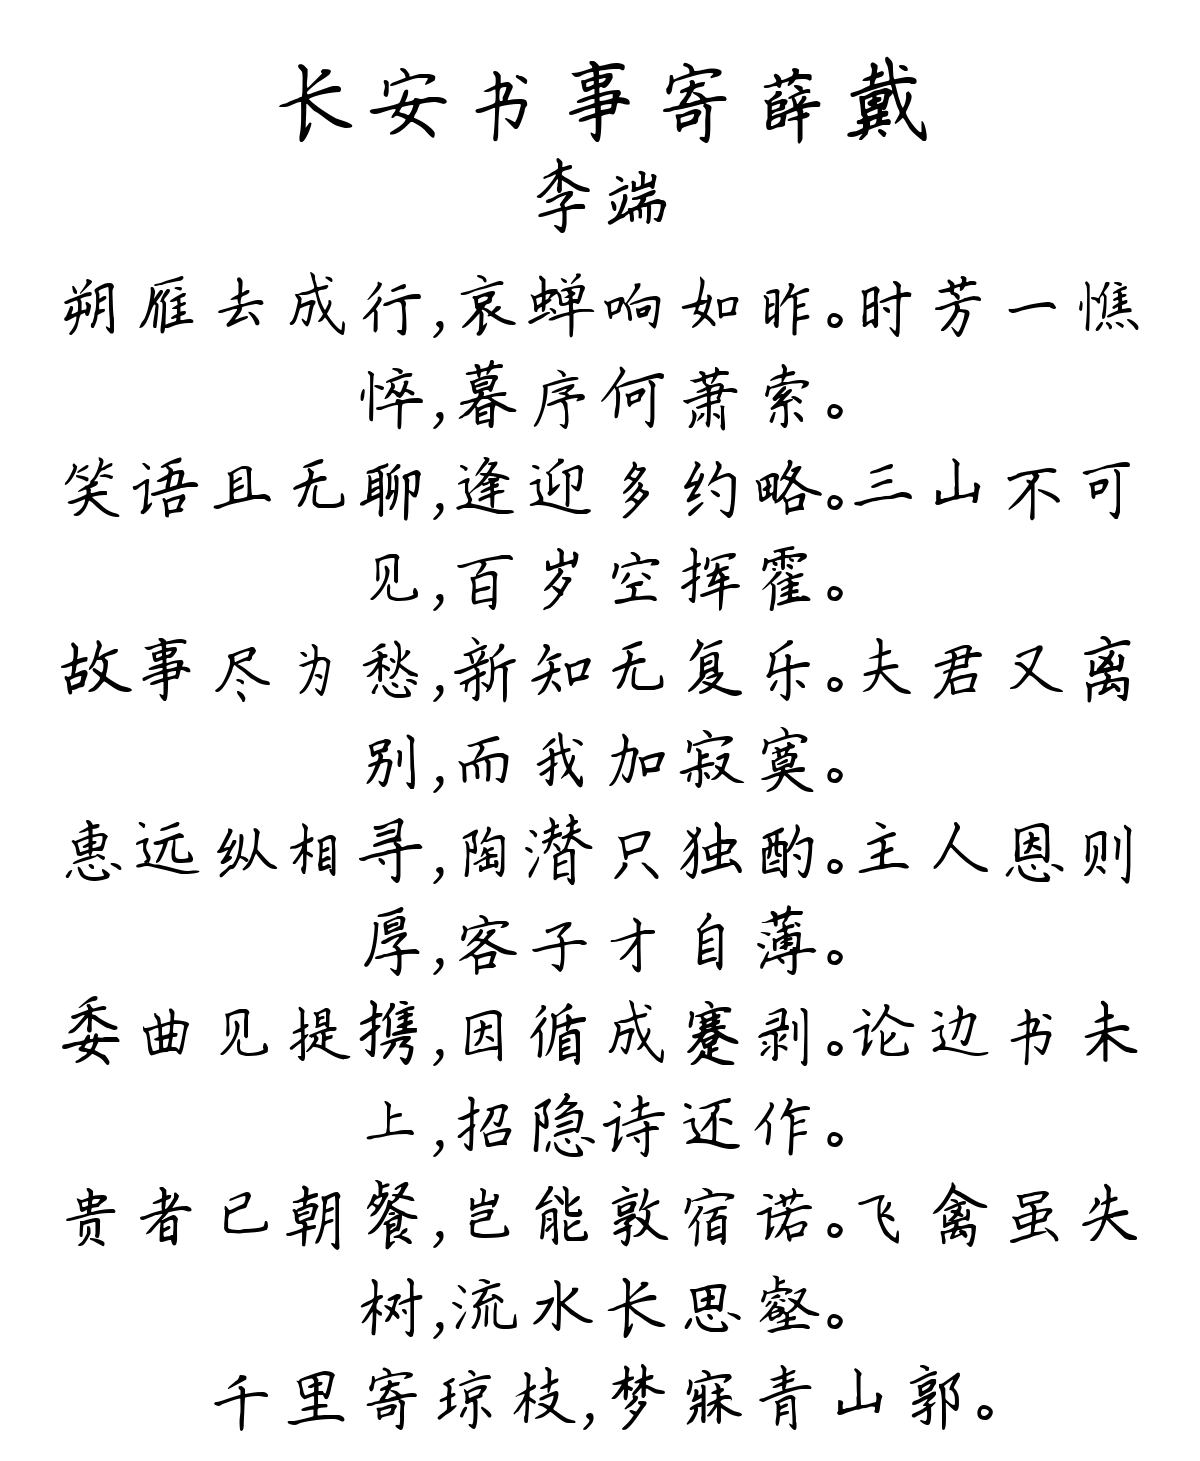 长安书事寄薛戴
李端
朔雁去成行,哀蝉响如昨。时芳一憔
悴,暮序何萧索。
笑语且无聊,逢迎多约略。三山不可
见,百岁空挥霍。
故事尽为愁,新知无复乐。夫君又离
别,而我加寂寞。
惠远纵相寻,陶潜只独酌。主人恩则
厚,客子才自薄。
委曲见提携,因循成蹇剥。论边书未
上,招隐诗还作。
贵者已朝餐,岂能敦宿诺。飞禽虽失
树,流水长思壑。
千里寄琼枝,梦寐青山郭。